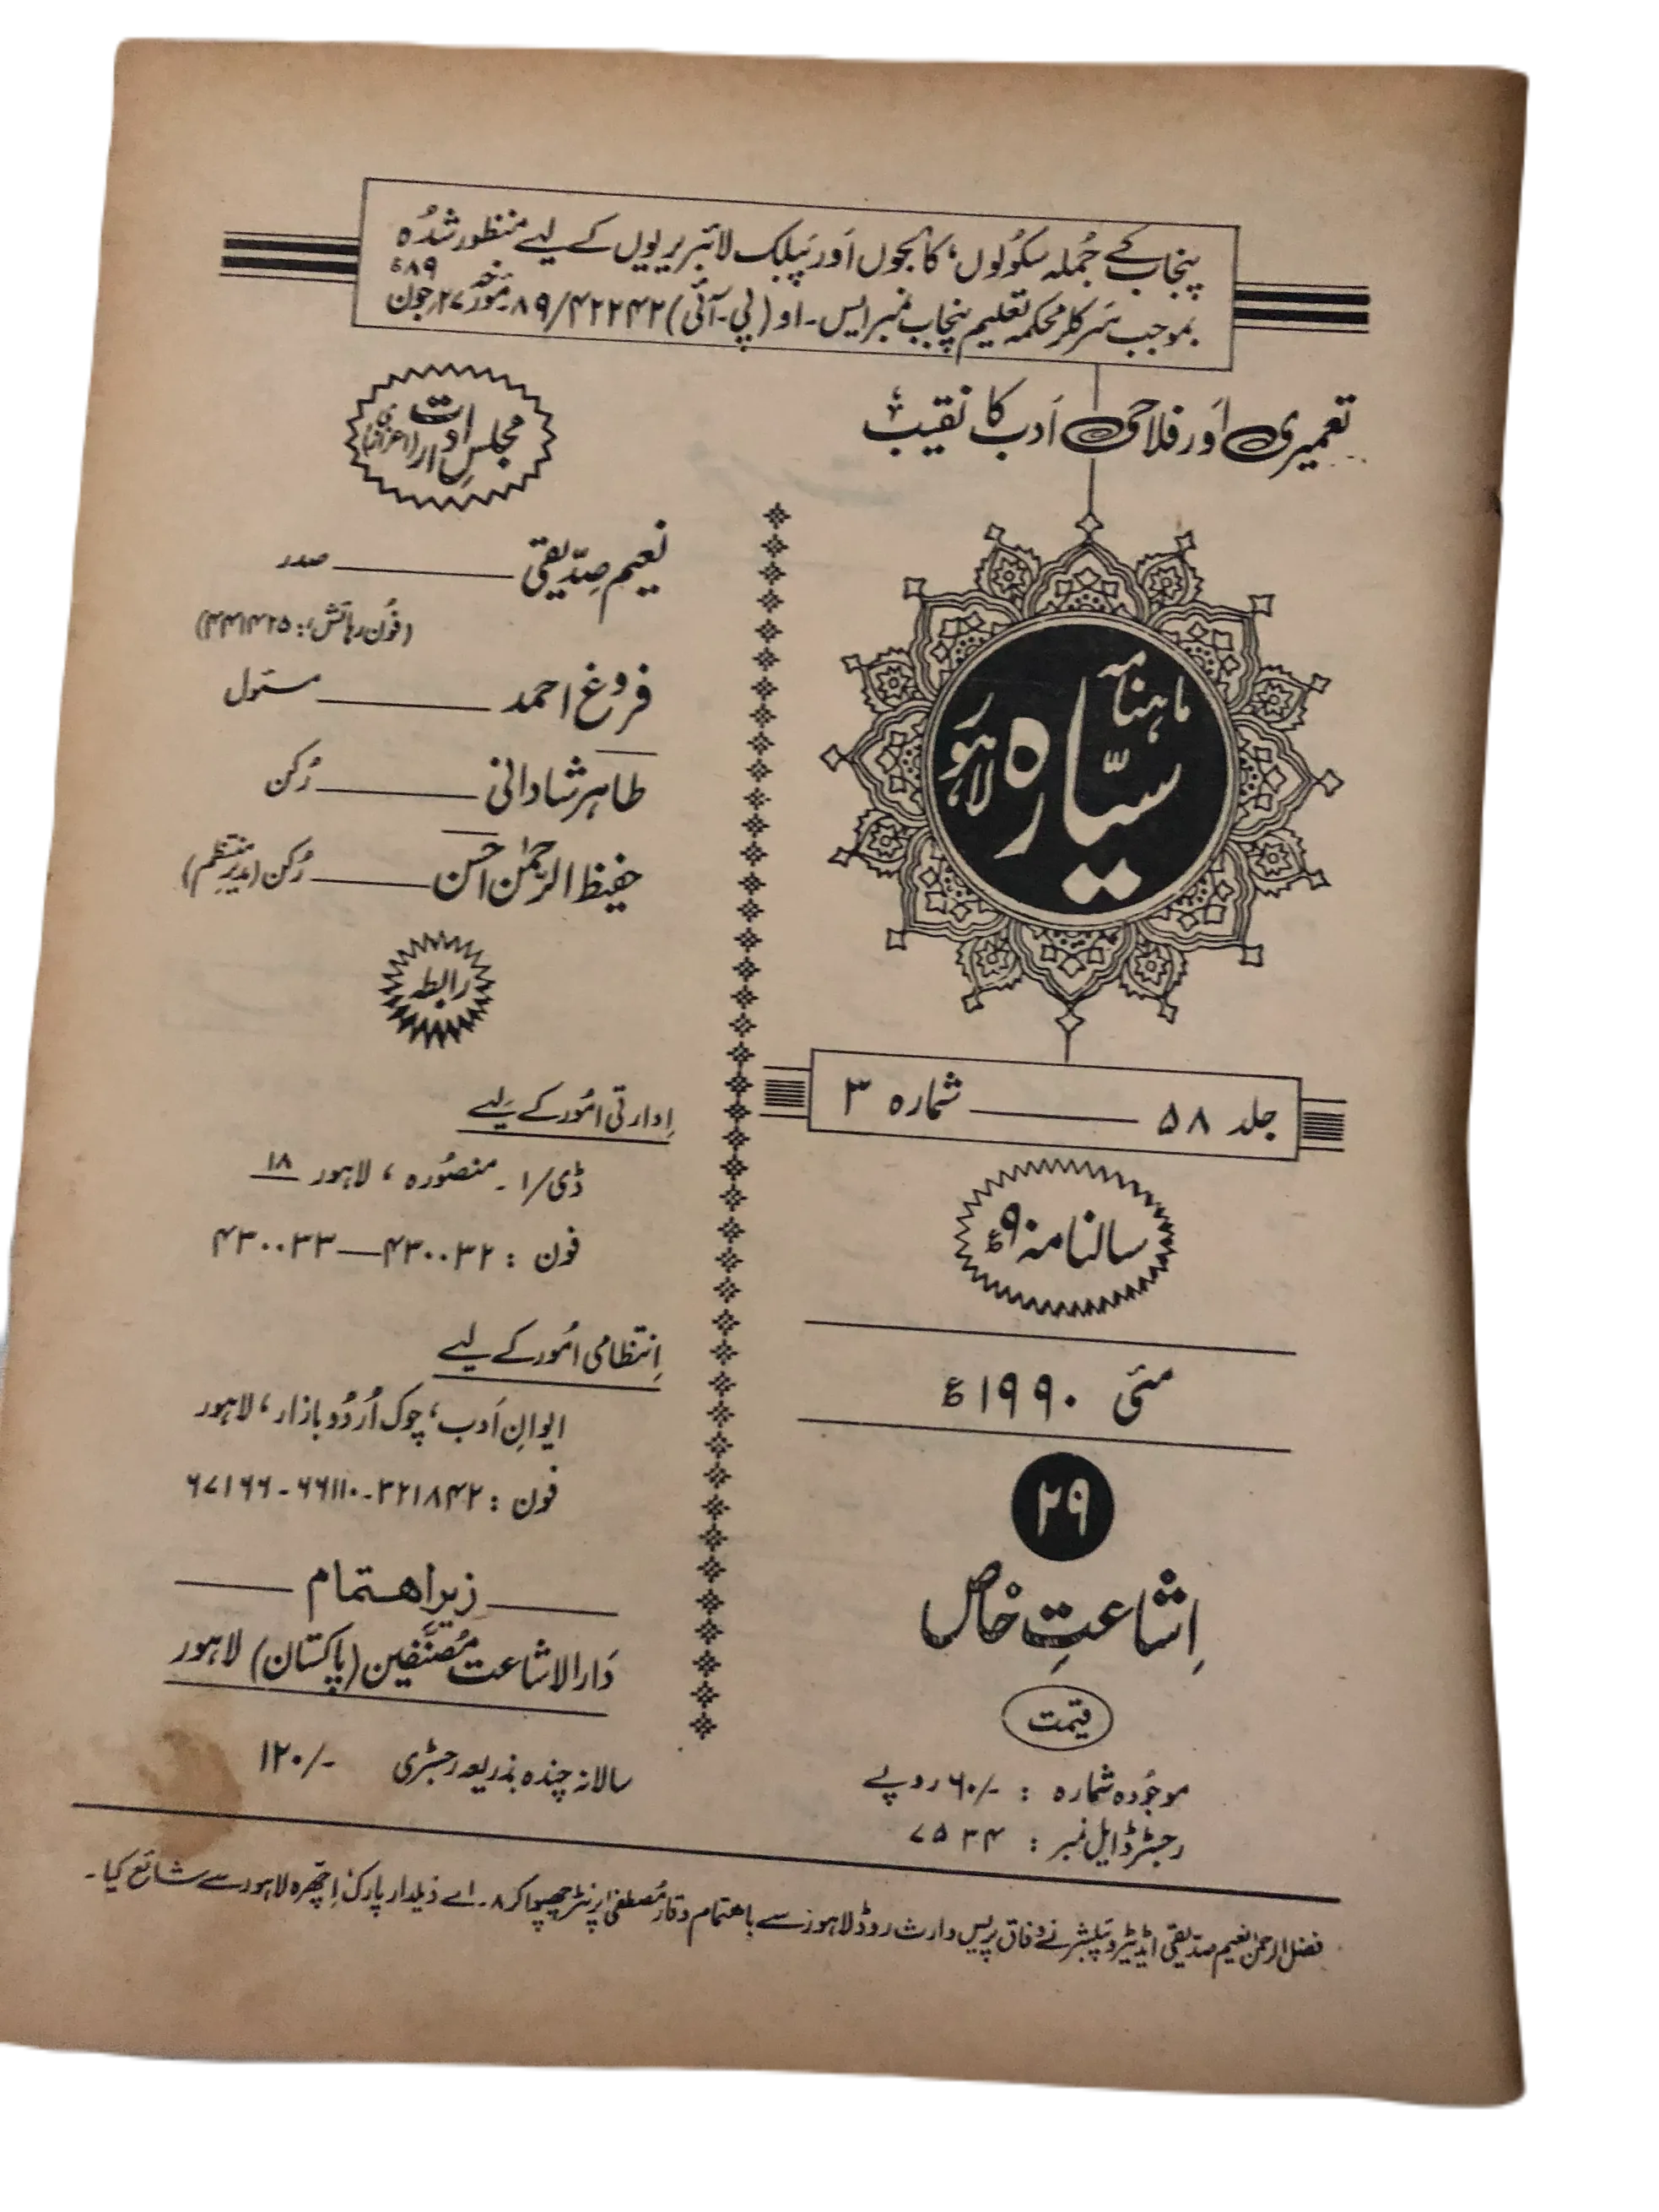 پنجاب کے جُملہ سکولوں، کالجوں اَور پَبلک لائبریریوں کے لیے منظور شُدہ
بموجب سَرکلر محکمہ تعلیم پنجاب نمبر ایس۔او (پی۔آئی) ۸۹/۴۲۲۴۲ مورّخہ ۲۷ جون ۸۹ء
تعمیری اَور فلاحی اَدب کا نقیب
ماہنامہ
سیّارہ
لاہور
جلد ۵۸ ——— شمارہ ۳
سالنامہ ۹۰ء
مئی ۱۹۹۰ء
۲۹
اِشاعتِ خاص
قیمت
موجُودہ شمارہ : -/۶۰ روپے
رجسٹرڈ ایل نمبر : ۷۵۳۴
مجلسِ ادارت (اعزازی)
نعیم صدّیقی ——— صدر
(فون رہائش: ۴۴۱۴۲۵)
فروغ احمد ——— مسئول
طاہر شادانی ——— رُکن
حفیظ الرحمٰن احسن ——— رُکن (مدیر منتظم)
رابطہ
اِدارتی امُور کے لیے
ڈی/۱ ۔ منصُورہ ، لاہور ۱۸
فون : ۴۳۰۰۳۲—۴۳۰۰۳۳
اِنتظامی اُمور کے لیے
ایوانِ اَدب، چوک اُردُو بازار، لاہور
فون : ۳۲۱۸۴۲-۶۶۱۱۰-۶۷۱۶۶
زیرِ اہتمام
دَارالاشاعت مُصنّفین (پاکستان) لاہور
سالانہ چندہ بذریعہ رجسٹری -/۱۲۰
فضل الرحمٰن نعیم صدّیقی ایڈیٹر و پبلشر نے وفاق پریس وارث روڈ لاہور سے باہتمام وقار مُصطفٰی پرنٹر چھپوا کر ۸۔اے ذیلدار پارک اِچھرہ لاہور سے شائع کیا۔